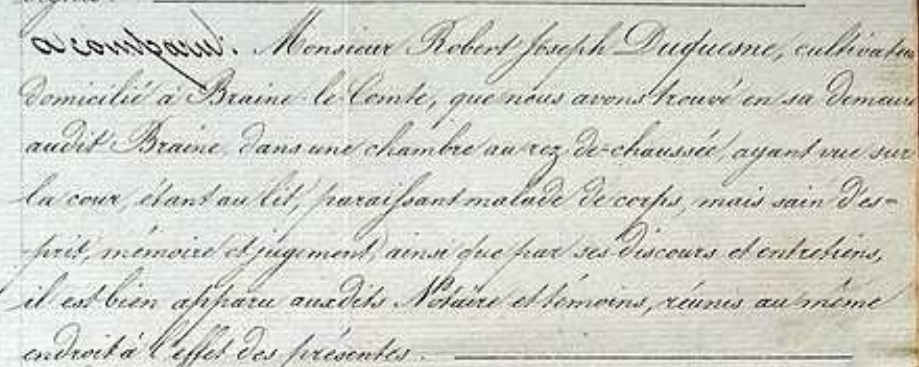 a comparu. Monsieur Robert Joseph Duquesne, cultivateur
domicilié à Braine-le-Comte, que nous avons trouvé en sa demeure
audit Braine, dans une chambre au rez-de-chaussée, ayant vue sur
la cour, étant au lit, paraissant malade de corps, mais sain d'es-
-prit, mémoire et jugement, ainsi que par ses discours et entretiens,
il est bien apparu auxdits Notaire et témoins, réunis au même
endroit à l'effet des présentes.